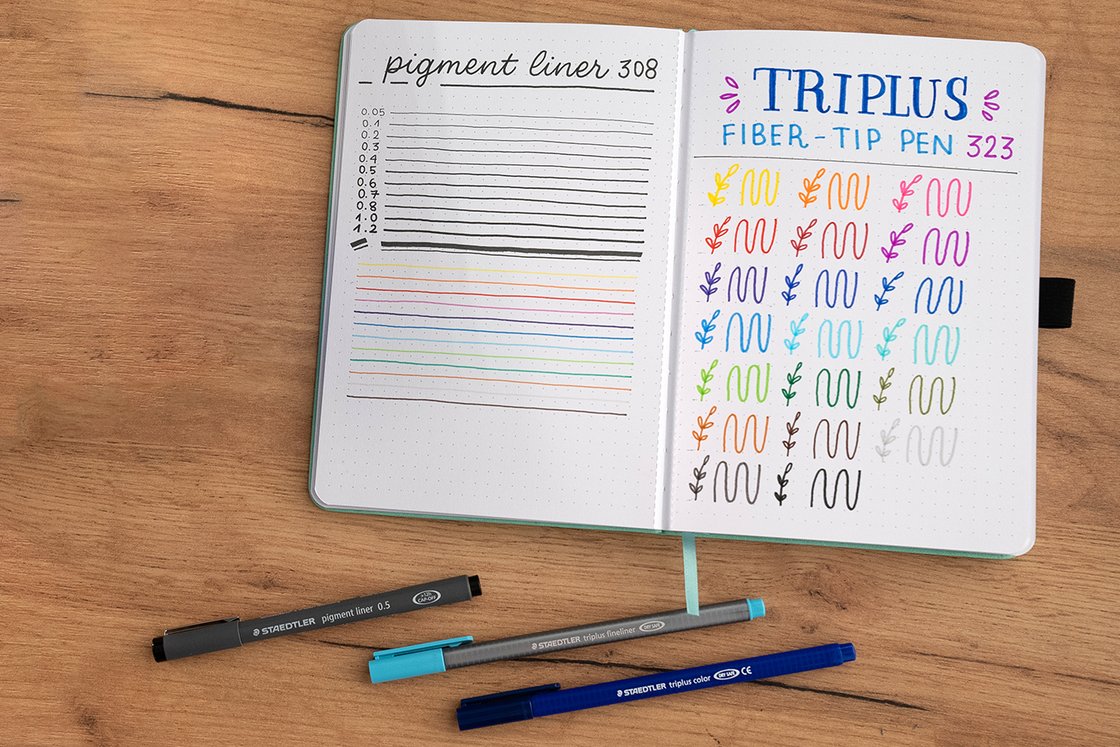 pigment liner 308
0.05
0.1
0.2
0.3
0.4
0.5
0.6
0.7
0.8
1.0
1.2
TRIPLUS
FIBER-TIP PEN 323
STAEDTLER pigment liner 0.5
CAP-OFF
STAEDTLER triplus fineliner DRY SAFE
STAEDTLER triplus color DRY SAFE CE